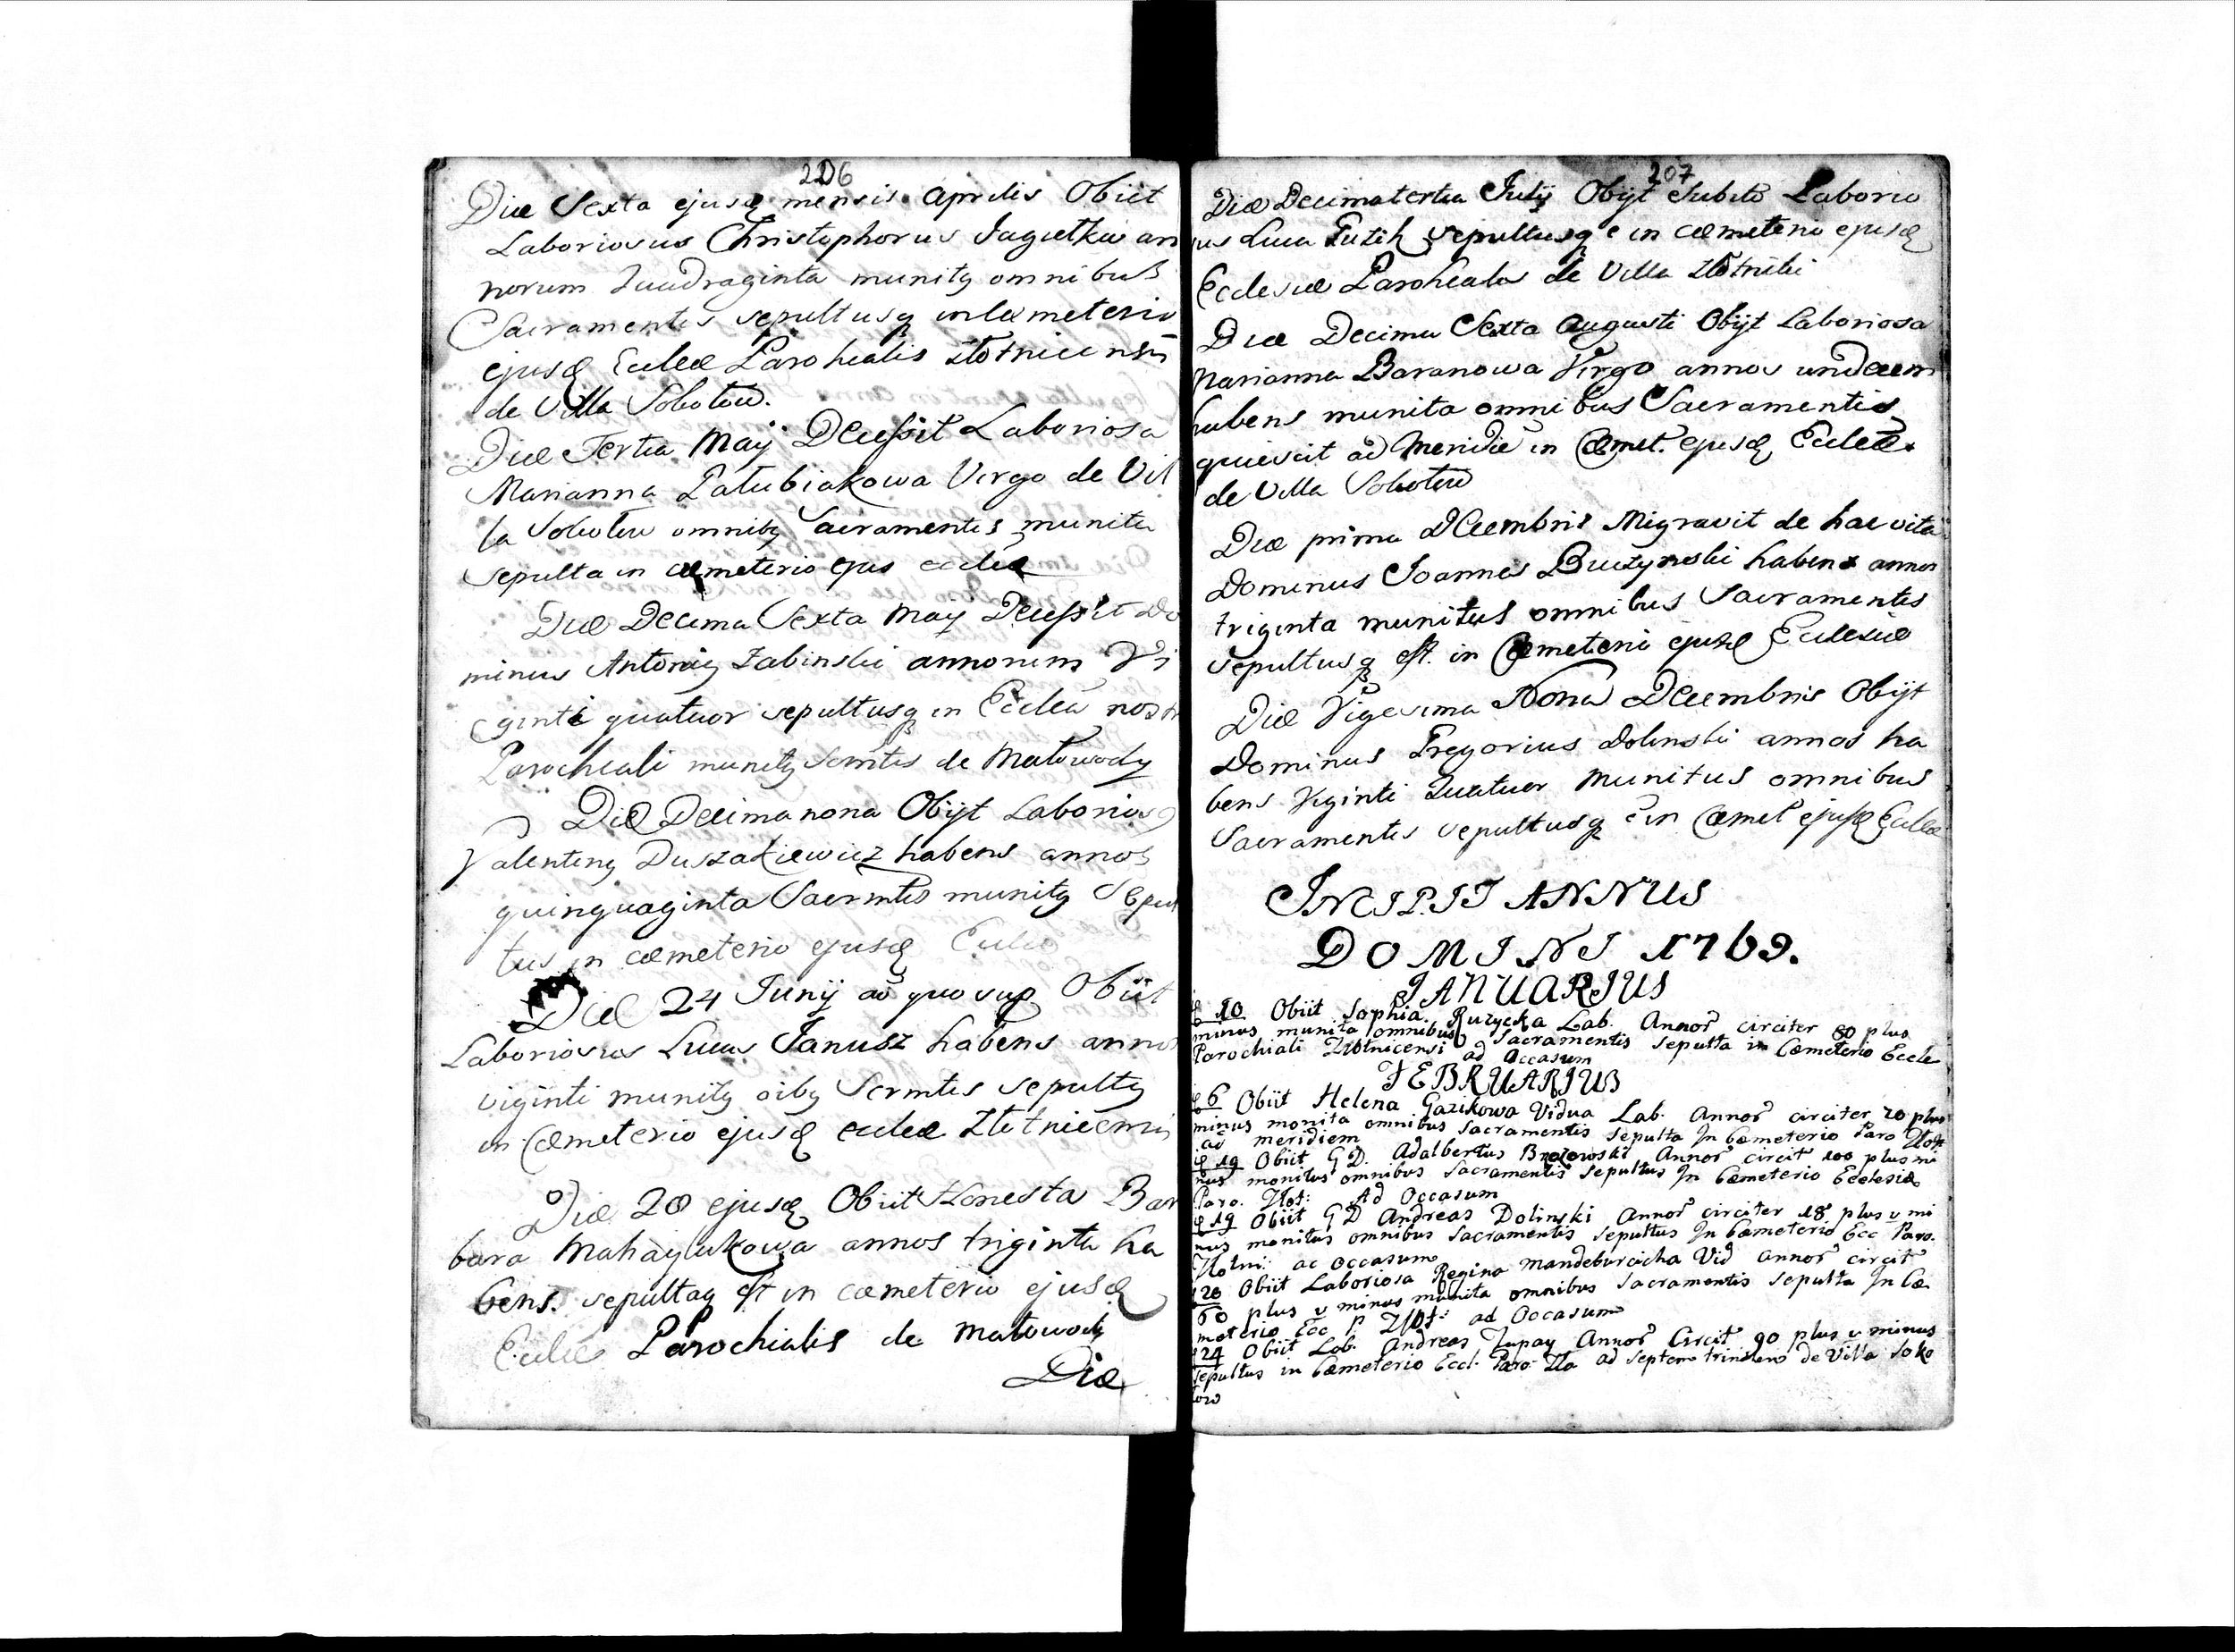 206
Diæ Sexta ejusq mensis Aprilis Obiit
Laboriosus Christophorus Jagustka an
norum Quadraginta munitq omnibus
Sacramentis sepultusq in Cæmeterio
ejusq Eccleæ Parohialis Złotnicensis
de Villa Sobotew.
Diæ Tertia Maij Decessit Laboriosa
Marianna Patubiakowa Virgo de Vil
la Sobotew omnibq Sacramentis munita
Sepulta in cæmeterio ejus eccleæ
Diæ Decima Sexta Maij Decessit Do
minus Antoniq Zabinski annorum Vi
ginti quatuor sepultusq in Ecclea nostr
Parocheali munitq Scrmtis de Małowody
Diæ Decima nona Obijt Laborios
Valentinq Duszakiewicz habens annos
quinquaginta Sacrmtis munitq Sepul
tus in cæmeterio ejusq Eccleæ
Diæ 24 Junij aõ quo sup Obiit
Laboriosus Lucas Janusz habens annos
viginti munitq oibq Scrmtis sepultq
in Cæmeterio ejusq eccleæ Złotnicensis
Diæ 28 ejusq Obiit Honesta Bar
bara Mahaylukowa annos triginta ha
bens. sepultaq est in cæmeterio ejusq
Eccleæ Parochialis de Małowody
Diæ
207
Diæ Decimatertia Julij Obijt Subito Laborio
sus Luca Putih sepultusq e in cæmeterio ejusq
Ecclesiæ Parohealis de Villa Złotniki
Diæ Decima Sexta Augusti Obijt Laboriosa
Marianna Baranowa Virgo annos undecem
habens munita omnibus Sacramentis
quiescit ad Meridiē in Cæmet. ejusq Eccleæ
de Villa Sobotew
Diæ prima Decembris Migravit de hac vita
Dominus Joannes Buczynski habens annos
triginta munitus omnibus Sacramentis
sepultusq est. in Cæmeteri ejusq Ecclesiæ
Diæ Vigesima Nona Decembris Obijt
Dominus Gregorius Dolinski annos ha
bens Viginti Quatuor munitus omnibus
Sacramentis sepultusq e in Cæmet ejusq Eccleæ
INCIPIT ANNUS
DOMINI 1769.
JANUARIUS
10 Obiit Sophia Ruzycka Lab. Annor circiter 80 plus
minus munita omnibus Sacramentis sepulta in Cæmeterio Eccle
Parochiali Złotnicensi ad Occasum
FEBRUARIUS
6 Obiit Helena Gazikowa Vidua Lab. Annor circiter 20 plus
minus monita omnibus Sacramentis Sepulta In Cæmeterio Paro Złot
ad meridiem
19 Obiit G D. Adalbertus Brozowski Annor circit 100 plus mi
nus monitus omnibus Sacramentis Sepultus In Cæmeterio Ecclesiæ
Paro. Złot: Ad Occasum
19 Obiit G D Andreas Dolinski Annor circiter 18 plus v mi
nus monitus omnibus Sacramentis Sepultus In Cæmeterio Ecc Paro.
Złotni: ac occasum
20 Obiit Laboriosa Regina Mandeburcicha Vid annor circit
60 plus v minus munita omnibus Sacramentis Sepulta In Cæ
meterio Ecc P Złot: ad Occasum
24 Obiit Lab. Andreas Zupay Annor Circit 90 plus v minus
sepultus in Cæmeterio Eccl. Paro Zło ad Septem trinalem de Villa Soko
low